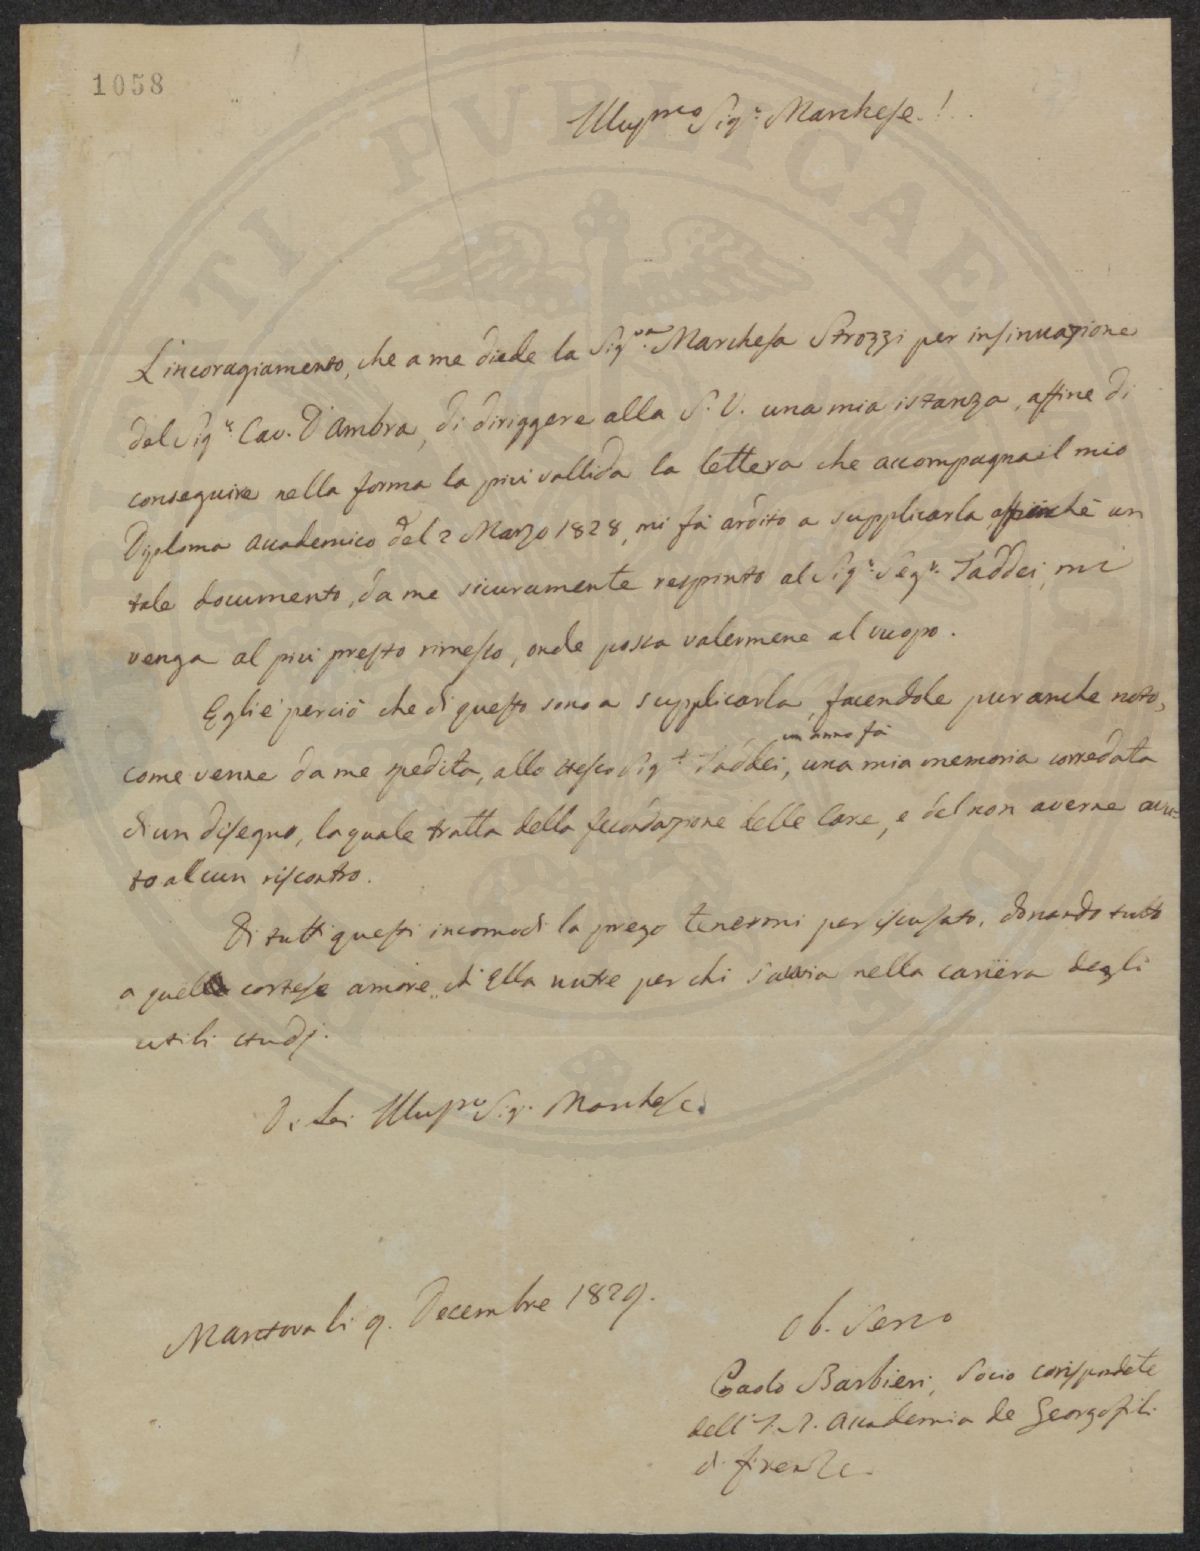 1058
Illuſmo Sigr. Marcheſe.!..
L'incoragiamento, che a me diede la Sigra. Marcheſa Strozzi per inſinuazione
del Sigr. Cav. D'Ambra, di diriggere alla S. V. una mia istanza, affine di
conseguire nella forma la più vallida la lettera che accompagna il mio
Diploma accademico del 2 Marzo 1828, mi fà ardito a supplicarla, affinchè un
tale documento, da me sicuramente respinto al Sigr. Segr. Taddei, mi
venga al più preſto rimeſso, onde possa valermene al uuopo.
Egli è perciò che di queſto sono a supplicarla, facendole pur anche noto,
un anno fà
come venne da me spedita, allo steſso Sigr. Taddei, una mia memoria corredata
di un diſegno, la quale tratta della fecondazione delle Care, e del non averne avu-
to alcun riſcontro.
Di tutti queſti incomodi la prego tenermi per iſcuſato, donando tutto
a quel corteſe amore, ch'Ella nutre per chi s'avvia nella cariera degli
utili studj.
Di Lei Illuſmo Sigr. Marcheſe.
Mantova li 9. Decembre 1829.
Ob. Servo
Paolo Barbieri, Socio corriſpondete
dell'I. R. Accademia de Georgofili
di Firenze.